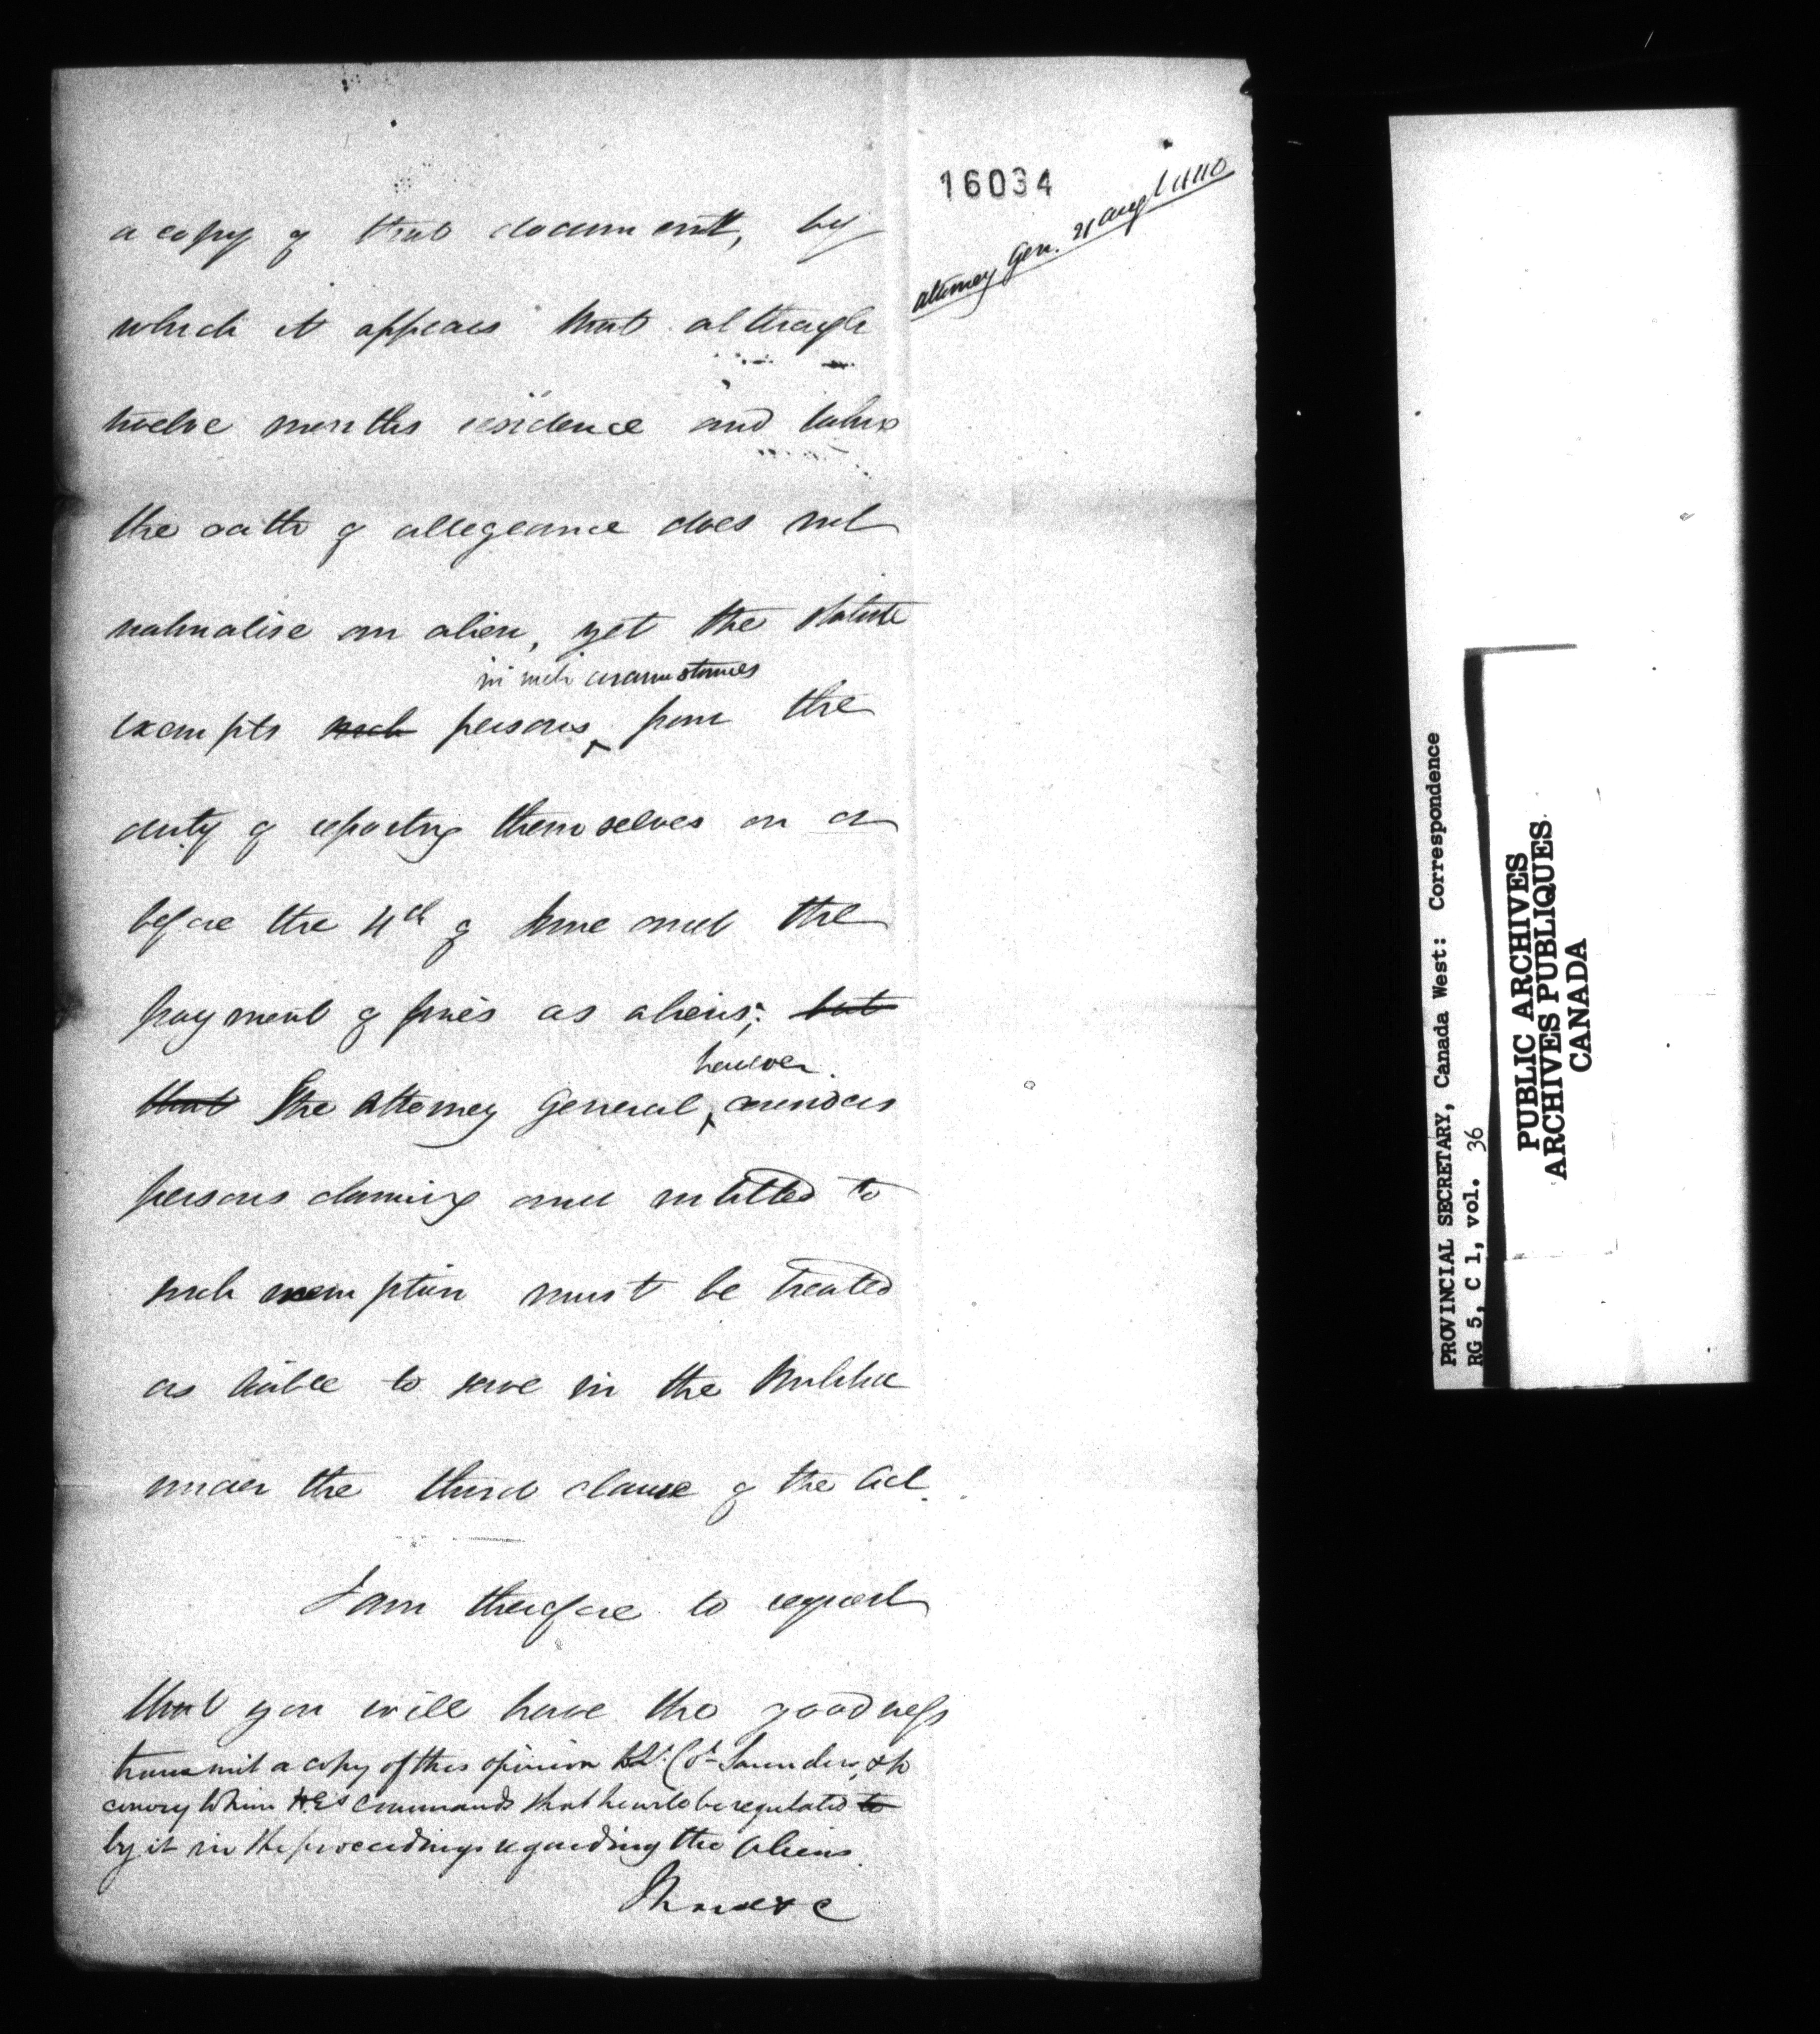 16034
Attorney Gen. 21 Augt 1840
a copy of that document, by
which it appears that although
twelve months residence and taking
the oath of allegeance does not
naturalise an alien, yet the Statute
in such circumstances
exempts such persons from the
duty of reporting themselves on or
before the 4th of June and the
payment of fines as aliens; but
however
that The Attorney General, considers
persons claiming and entitled to
such exemption must be treated
as liable to serve in the Militia
under the third clause of the Act.
I am therefore to request
that you will have the goodness
transmit a copy of this opinion to Lt. Col. Saunders, & to
convey to him H.E's Commands that he is to be regulated to
by it in the proceedings regarding the Aliens.
I have &c
PROVINCIAL SECRETARY, Canada West: Correspondence
RG 5, C 1, vol. 36
PUBLIC ARCHIVES
ARCHIVES PUBLIQUES
CANADA